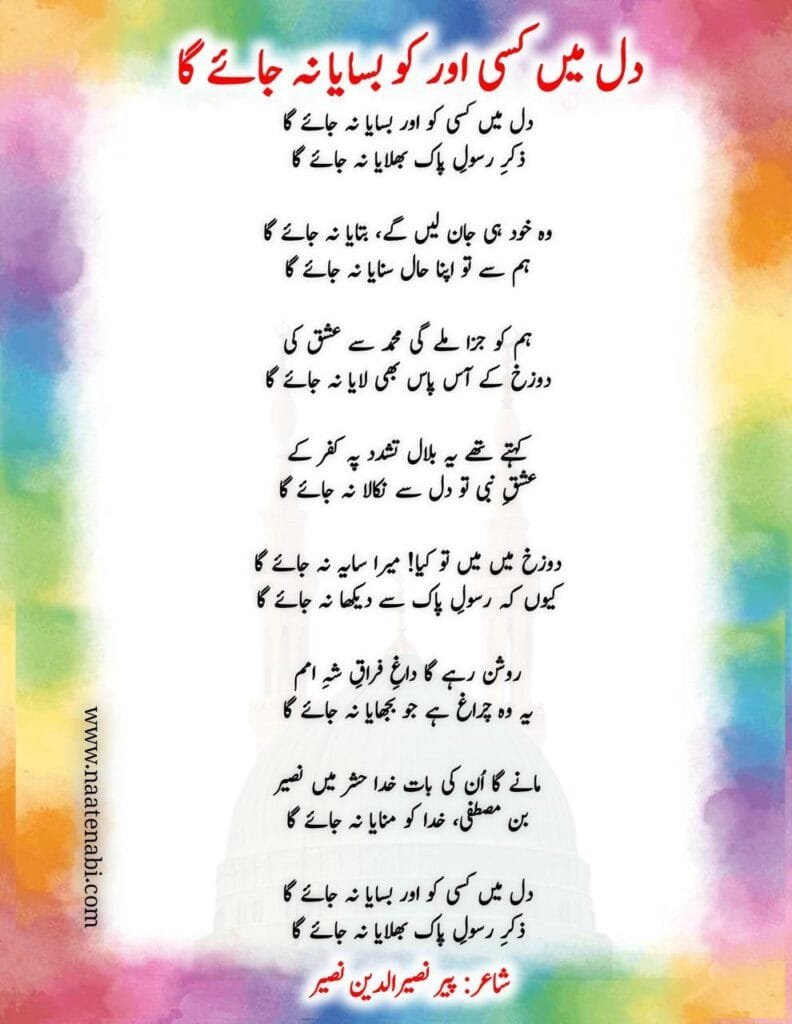 دل میں کسی اور کو بسایا نہ جائے گا
دل میں کسی کو اور بسایا نہ جائے گا
ذکرِ رسولِ پاک بھلایا نہ جائے گا
وہ خود ہی جان لیں گے، بتایا نہ جائے گا
ہم سے تو اپنا حال سنایا نہ جائے گا
ہم کو جزا ملے گی محمد سے عشق کی
دوزخ کے آس پاس بھی لایا نہ جائے گا
کہتے تھے یہ بلال تشدد پہ کفر کے
عشقِ نبی تو دل سے نکالا نہ جائے گا
دوزخ میں میں تو کیا! میرا سایہ نہ جائے گا
کیوں کہ رسولِ پاک سے دیکھا نہ جائے گا
روشن رہے گا داغِ فراقِ شہِ امم
یہ وہ چراغ ہے جو بجھایا نہ جائے گا
مانے گا اُن کی بات خدا حشر میں نصیر
بن مصطفٰی، خدا کو منایا نہ جائے گا
دل میں کسی کو اور بسایا نہ جائے گا
ذکرِ رسولِ پاک بھلایا نہ جائے گا
شاعر: پیر نصیرالدین نصیر
www.naatenabi.com